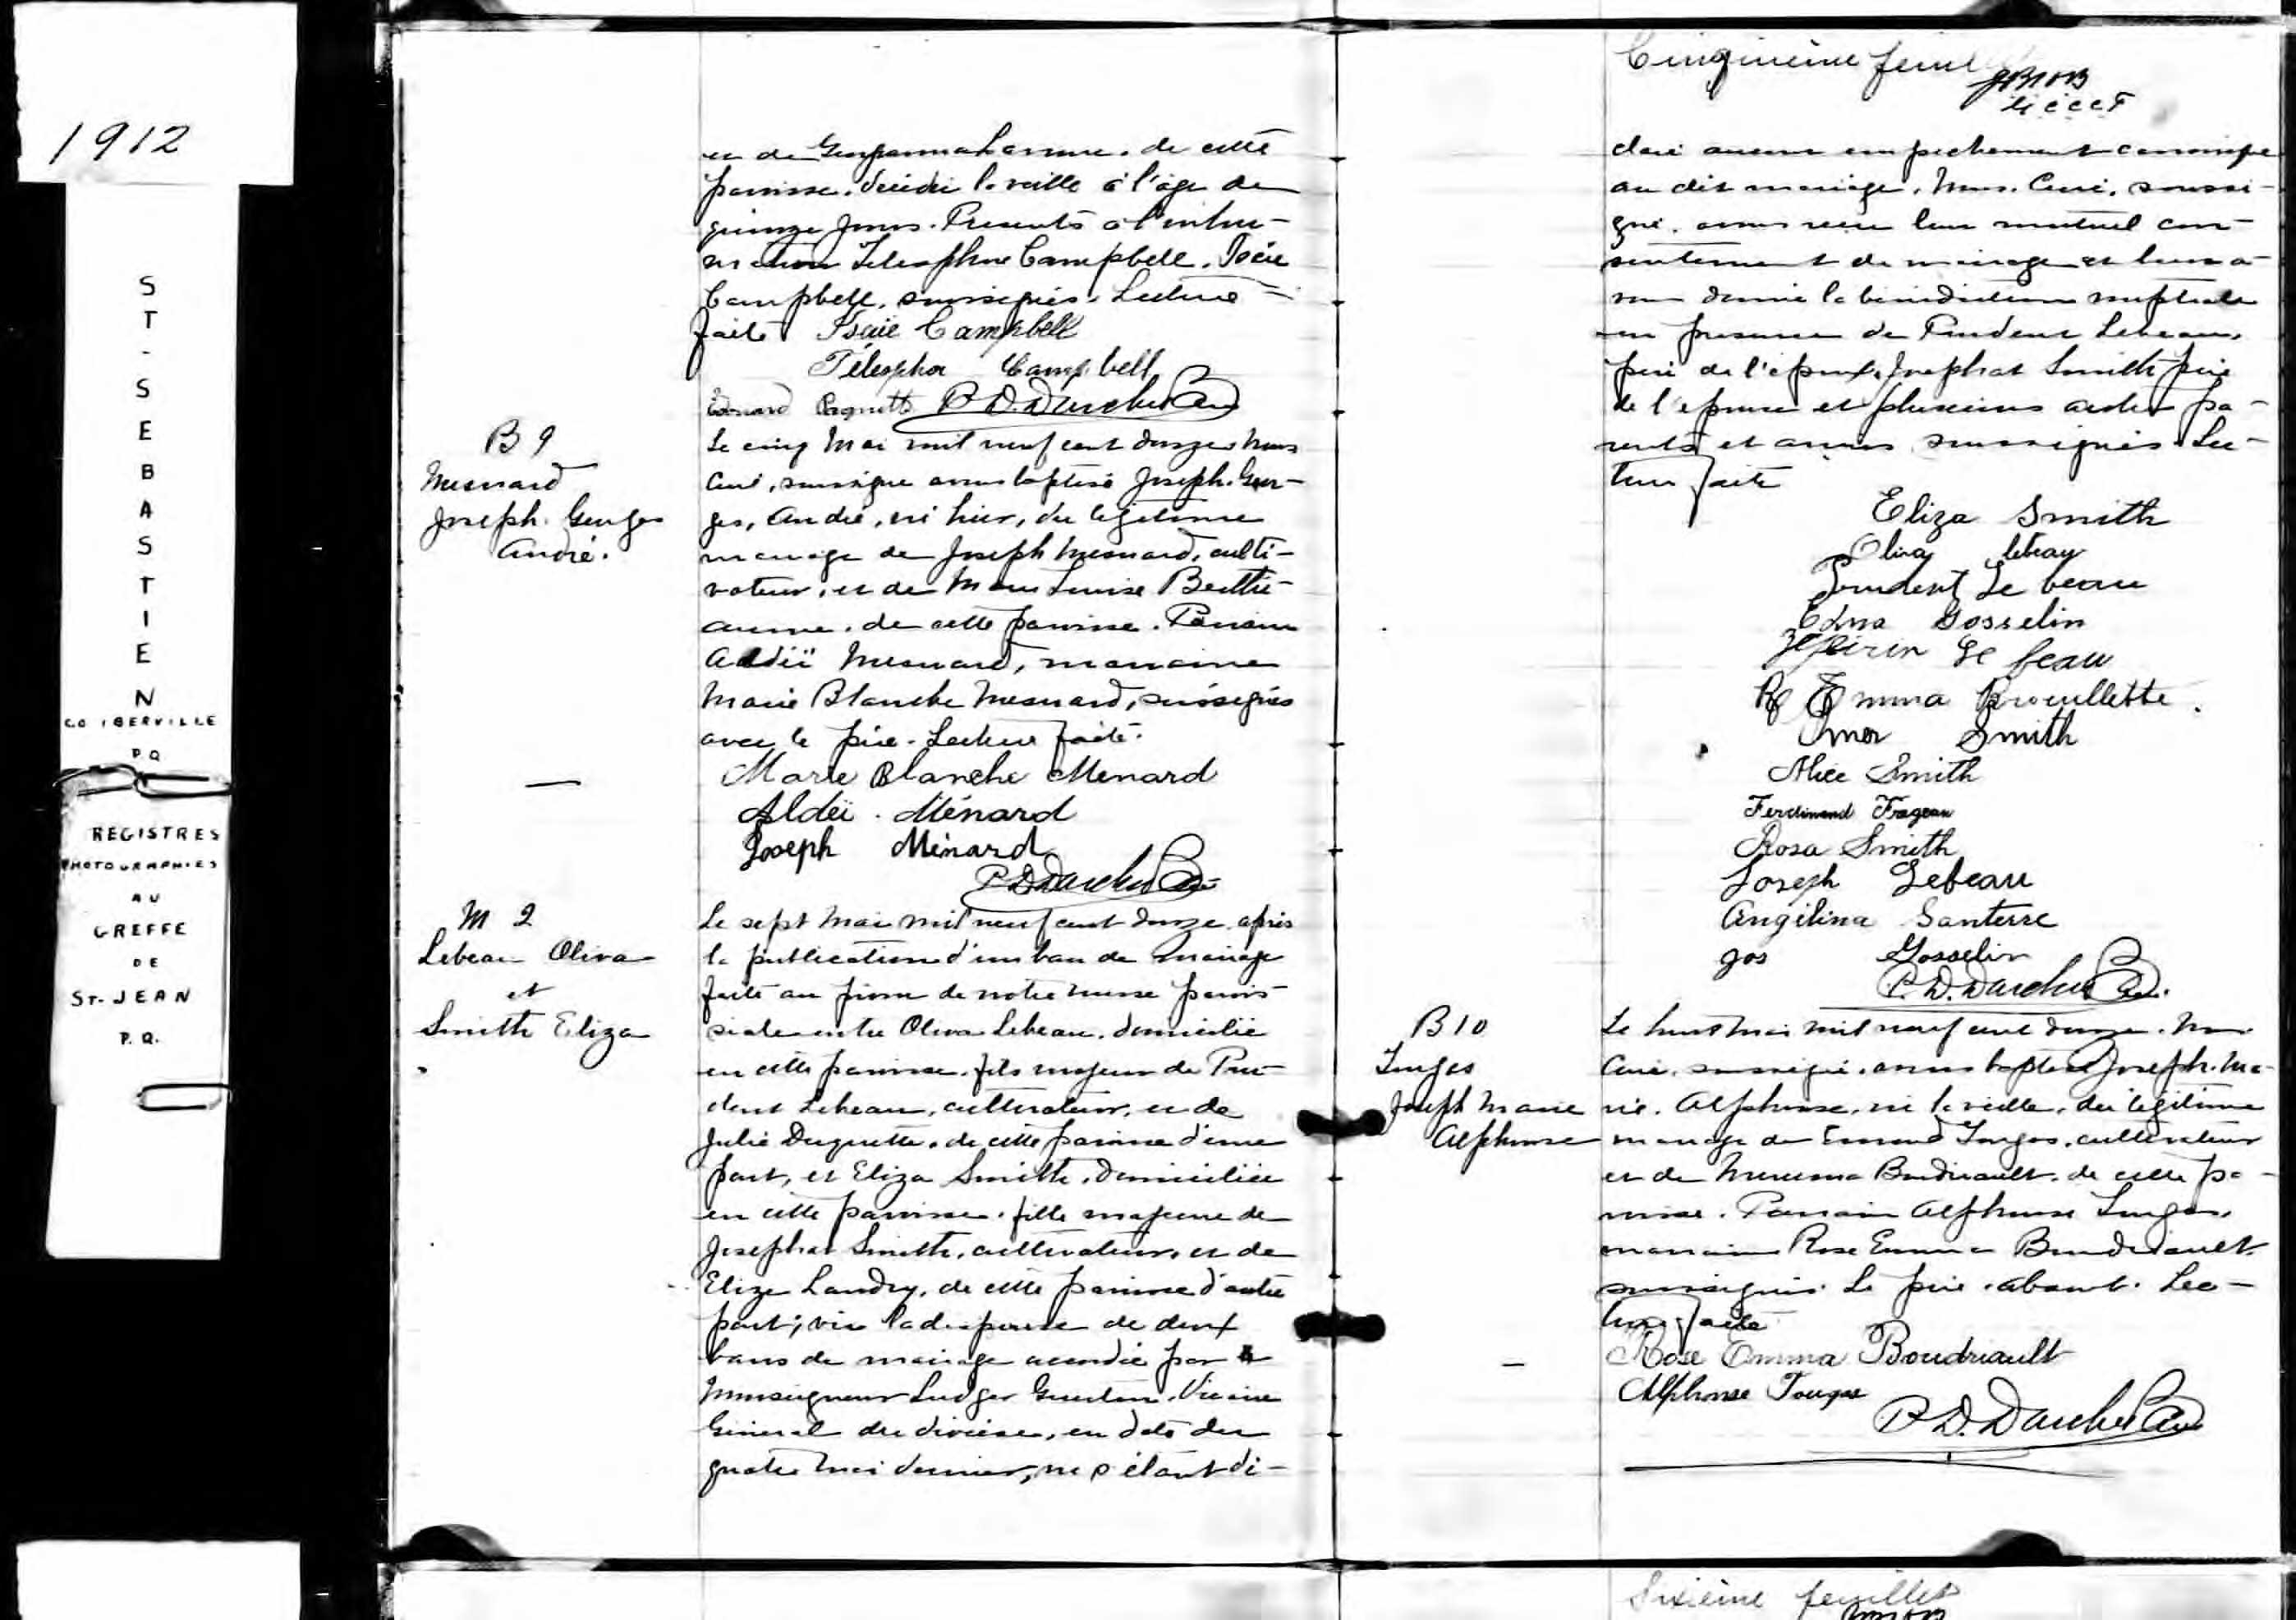 1912
ST-SEBASTIEN
CO IBERVILLE
P Q
REGISTRES
PHOTOGRAPHIES
AU
GREFFE
DE
ST-JEAN
P.Q.
et de Lanoue, de cette
paroisse, décédé la veille à l'âge de
quinze jours. Presents à l'inhu-
mation Télesphore Campbell, Isaïe
Campbell, soussignés. Lecture
faite Isaie Campbell
Télesphor Campbell
Edouard Paquette P. D. Darche Ptre
B 9
Mesnard
Joseph. Georges
André.
Le cinq Mai mil neuf cent douze, nous
Curé, soussigné avons baptisé Joseph. Geor-
ges, André, né hier, du légitime
mariage de Joseph Mesnard, culti-
vateur, et de Marie Louise Berthi-
aume, de cette paroisse. Parrain
Aldéï Mesnard, marraine
Marie Blanche Mesnard, soussignés
avec le père. Lecture faite.
Marie Blanche Menard
Aldéï Ménard
Joseph Ménard
P. D. Darche Ptre
M 2
Lebeau Oliva
et
Smith Eliza
Le sept Mai mil neuf cent douze, après
la publication d'un ban de mariage
faite au prône de notre messe parois-
siale entre Oliva Lebeau, domicilié
en cette paroisse, fils majeur de Pru-
dent Lebeau, cultivateur, et de
Julie Duquette, de cette paroisse d'une
part, et Eliza Smith, domiciliée
en cette paroisse, fille majeure de
Josephat Smith, cultivateur, et de
Eliza Landry, de cette paroisse d'autre
part; vu la dispense de deux
bans de mariage accordée par
Monseigneur Ludger Guertin, Vicaire
Général du diocèse, en date du
quatre mai dernier, ne s'étant dé-
Cinquième feuil
claré aucun empêchement canonique
au dit mariage, Nous, Curé, soussi-
gné, avons reçu leur mutuel con-
sentement de mariage et leur a-
vons donné la bénédiction nuptiale
en présence de Prudent Lebeau,
père de l'époux, Josephat Smith père
de l'épouse et plusieurs autres pa-
rents et amis soussignés. Lec-
ture faite
Eliza Smith
Oliva Lebeau
Prudent Le beau
Edna Gosselin
Zéphirin Le beau
R Emma Brouillette.
Omer Smith
Alice Smith
Ferdinand Frageau
Rosa Smith
Joseph Lebeau
Angélina Santerre
Jos Gosselin
P. D. Darche Ptre.
B 10
Tougas
Joseph Marie
Alphonse
Le huit Mai mil neuf cent douze. Nous
Curé, soussigné, avons baptisé Joseph. Ma-
rie. Alphonse, né la veille, du légitime
mariage de Tougas, cultivateur
et de Boudriault, de cette pa-
roisse. Parrain Alphonse Tougas,
marraine Rose Emma Boudriault
soussignés. Le père absent. Lec-
ture faite
Rose Emma Boudriault
Alphonse Tougas
P. D. Darche Ptre
Sixième feuillet